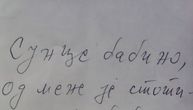 Сунце бабино,
од мене је стоти-